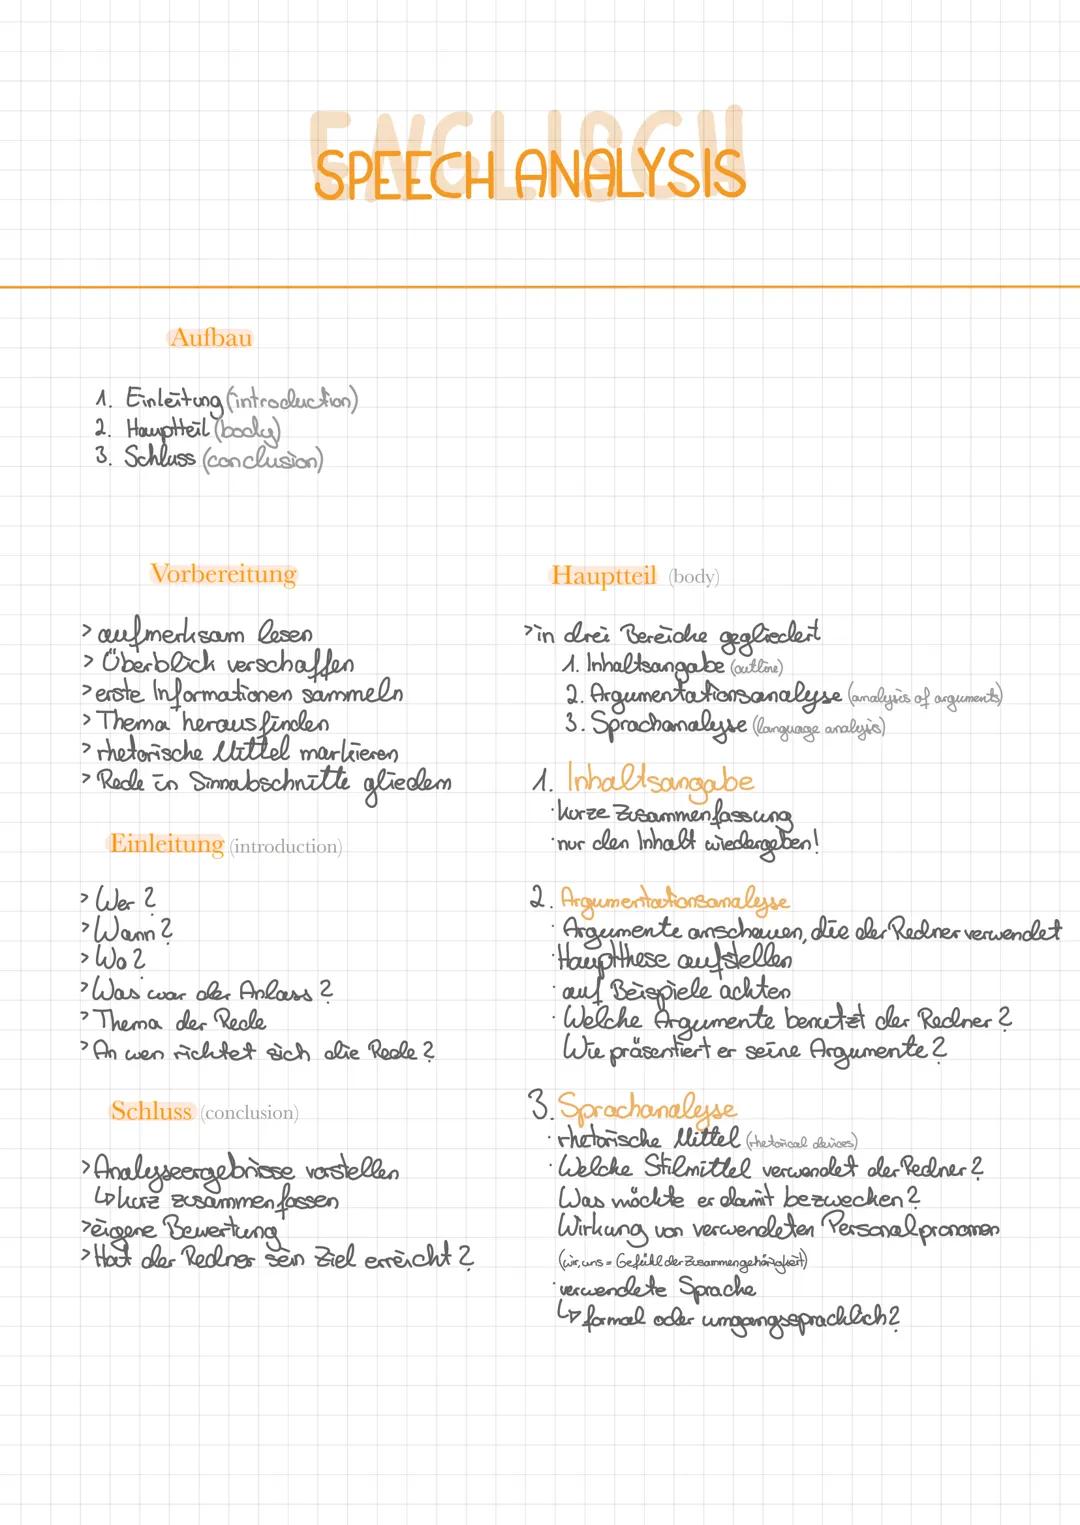 ENGLISCH
SPEECH ANALYSIS
Aufbau
1. Einleitung (introduction)
2. Hauptteil (body)
3. Schluss (conclusion)
Vorbereitung
> aufmerksam lesen
> Überblick verschaffen
> erste Informationen sammeln
> Thema herausfinden
> rhetorische Mittel markieren
> Rede in Sinnabschnitte gliedern
Einleitung (introduction)
> Wer?
> Wann?
> Wo?
> Was war der Anlass?
> Thema der Rede
> An wen richtet sich die Rede?
Schluss (conclusion)
> Analyseergebnisse vorstellen
↳ kurz zusammenfassen
> eigene Bewertung
> Hat der Redner sein Ziel erreicht?
Hauptteil (body)
> in drei Bereiche gegliedert
1. Inhaltsangabe (outline)
2. Argumentationsanalyse (analysis of arguments)
3. Sprachanalyse (language analysis)
1. Inhaltsangabe
· kurze Zusammenfassung
· nur den Inhalt wiedergeben!
2. Argumentationsanalyse
· Argumente anschauen, die der Redner verwendet
· Hauptthese aufstellen
· auf Beispiele achten
· Welche Argumente benutzt der Redner?
Wie präsentiert er seine Argumente?
3. Sprachanalyse
· rhetorische Mittel (rhetorical devices)
· Welche Stilmittel verwendet der Redner?
Was möchte er damit bezwecken?
Wirkung von verwendeten Personalpronomen
(wir, uns = Gefühl der Zusammengehörigkeit)
· verwendete Sprache
↳ formal oder umgangssprachlich?